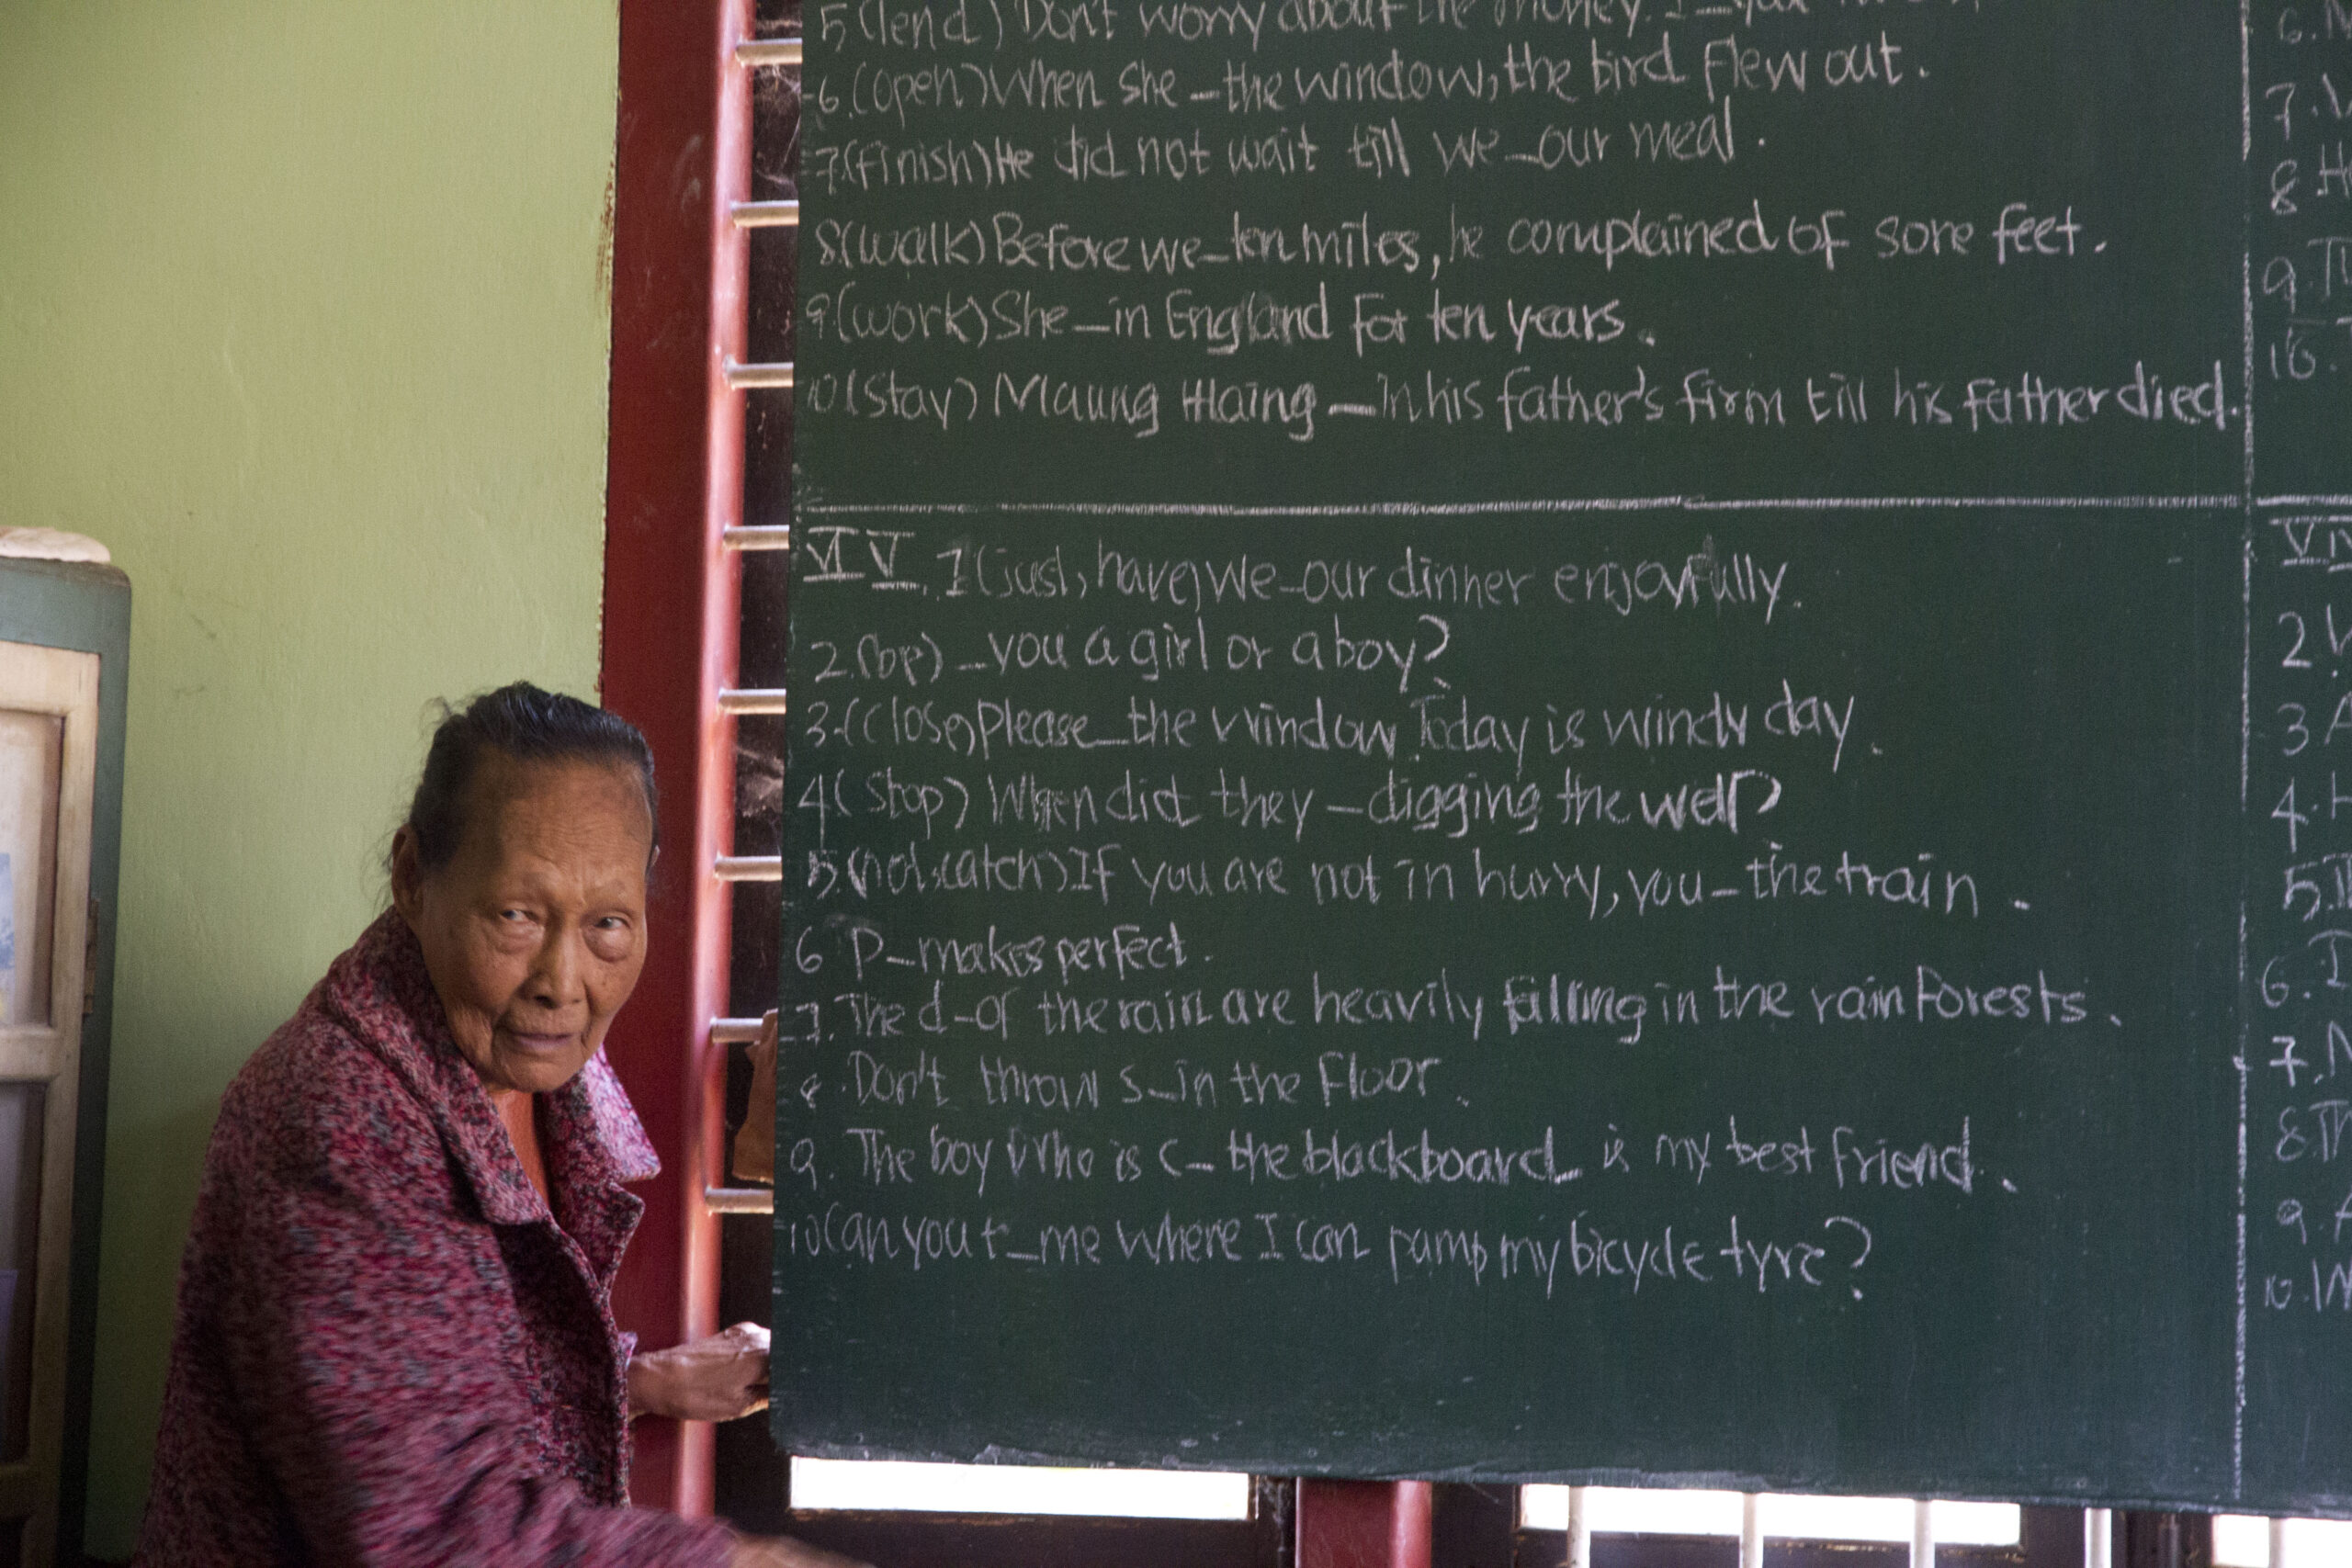 5 (lend) Don't worry about the money. I _ you
6. (open) When she _ the window, the bird flew out.
7. (finish) He did not wait till we _ our meal.
8 (walk) Before we _ ten miles, he complained of sore feet.
9. (work) She _ in England for ten years.
10 (stay) Maung Hlaing _ in his father's firm till his father died.
VI V. 1 (just, have) We _ our dinner enjoyfully.
2. (be) _ you a girl or a boy?
3. (close) Please _ the window. Today is windy day.
4 (stop) When did they _ digging the well?
5. (not, catch) If you are not in hurry, you _ the train.
6 P _ makes perfect.
7. The d _ of the rain are heavily falling in the rain forests.
8. Don't throw s _ in the floor.
9. The boy who is c _ the blackboard is my best friend.
10 Can you t _ me where I can pump my bicycle tyre?
6.
7.
8
9.
10.
2
3
4.
5.
6.
7.
8.
9.
10.